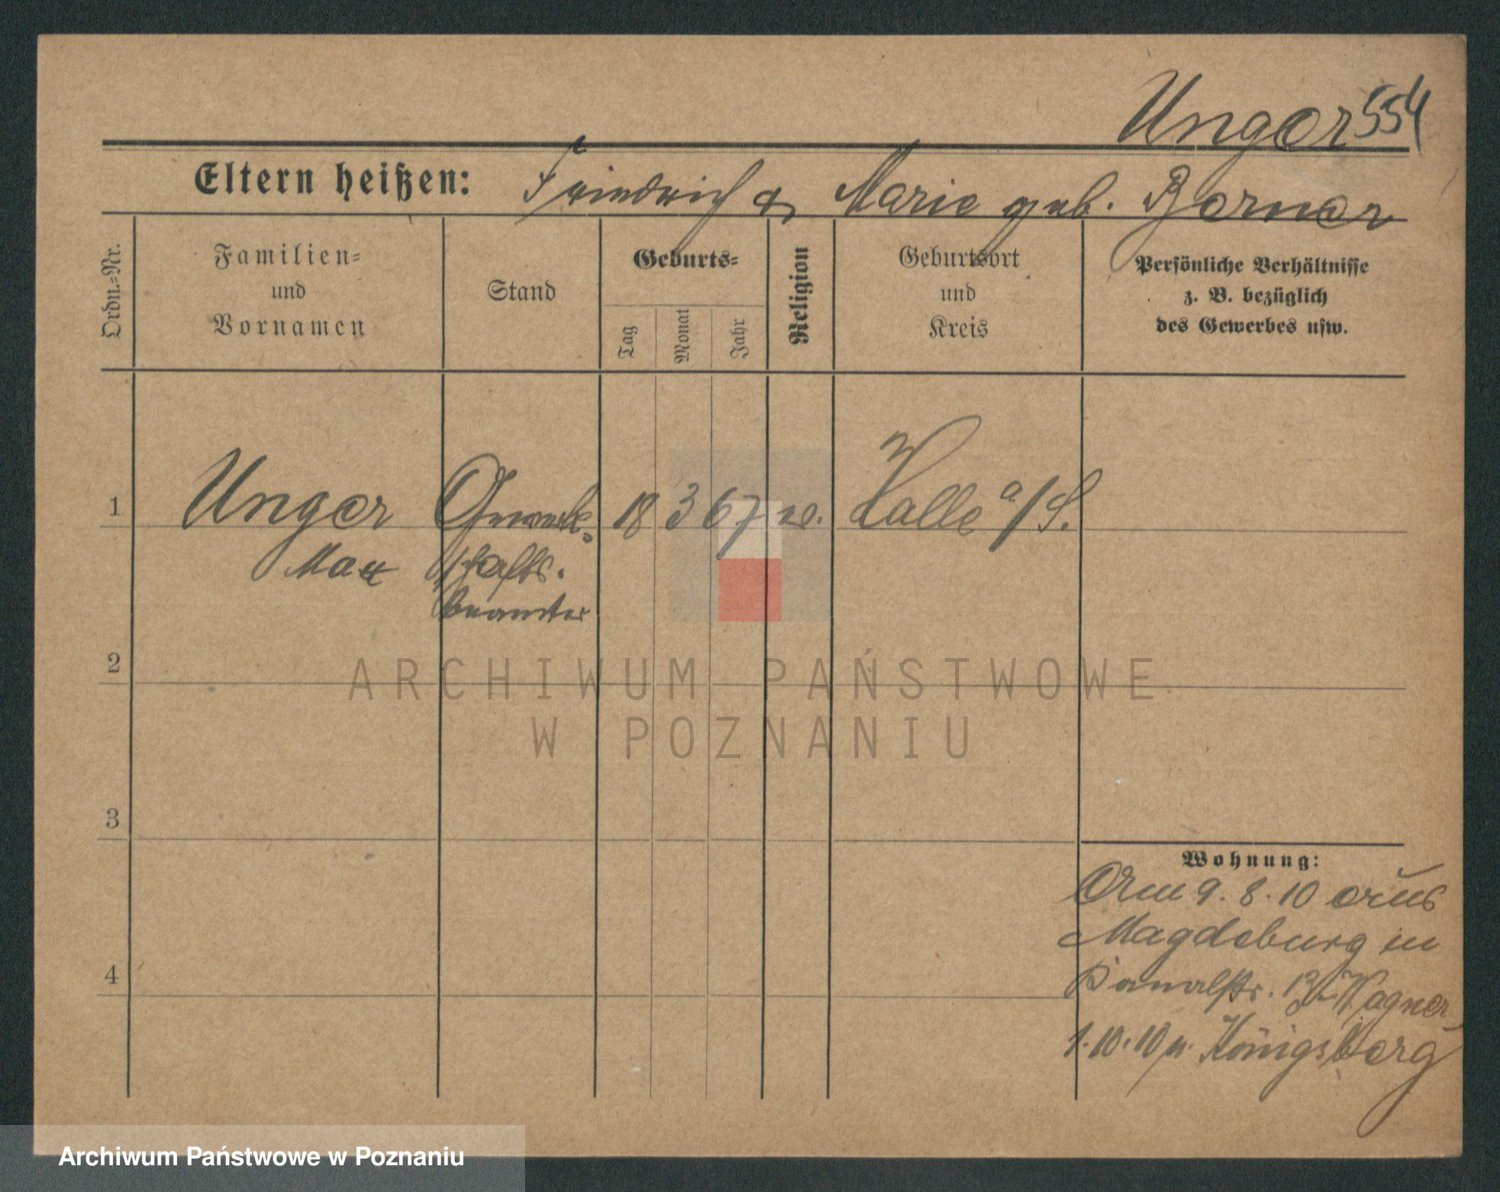 Unger 554
Eltern heißen: Friedrich & Marie geb. Berner
Ordn.-Nr.
Familien-
und
Vornamen
Stand
Geburts-
Tag
Monat
Jahr
Religion
Geburtsort
und
Kreis
Persönliche Verhältnisse
z. B. bezüglich
des Gewerbes usw.
1 Unger Gewerk- 18 3 67 ev. Halle a/S.
Max schafts-
beamter
2
3
4
Wohnung:
Am 9. 8. 10 aus
Magdeburg in
Kanalstr. 13 Wagner
1.10.10 n. Königsberg
ARCHIWUM PAŃSTWOWE
W POZNANIU
Archiwum Państwowe w Poznaniu